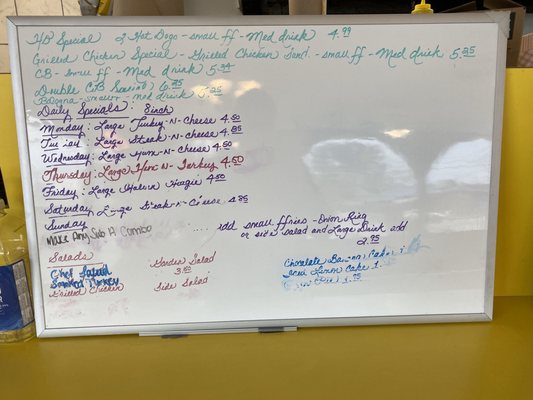 HD Special 2 Hot Dogs - small ff - Med drink 4.99
Grilled Chicken Special - Grilled Chicken Sand. - small ff - Med drink 5.25
CB - small ff - Med drink 5.24
Double CB Special 6.25
Bologna - small ff - med drink 5.25
Daily Specials: 8inch
Monday: Large Turkey-N-Cheese 4.50
Large Steak-N-Cheese 4.85
Wednesday: Large Ham-N-Cheese 4.50
Thursday: Large Ham N- Turkey 4.50
Friday: Large Hoagie 4.50
Saturday Steak-N-Cheese 4.85
Sunday
Make Any Sub A Combo ..... add small fries - Onion Ring
or side salad and Large Drink add
2.95
Salads
Chef Salad
Smoked Turkey
Grilled Chicken
Garden Salad
Side Salad
Chocolate
Lemon Cake